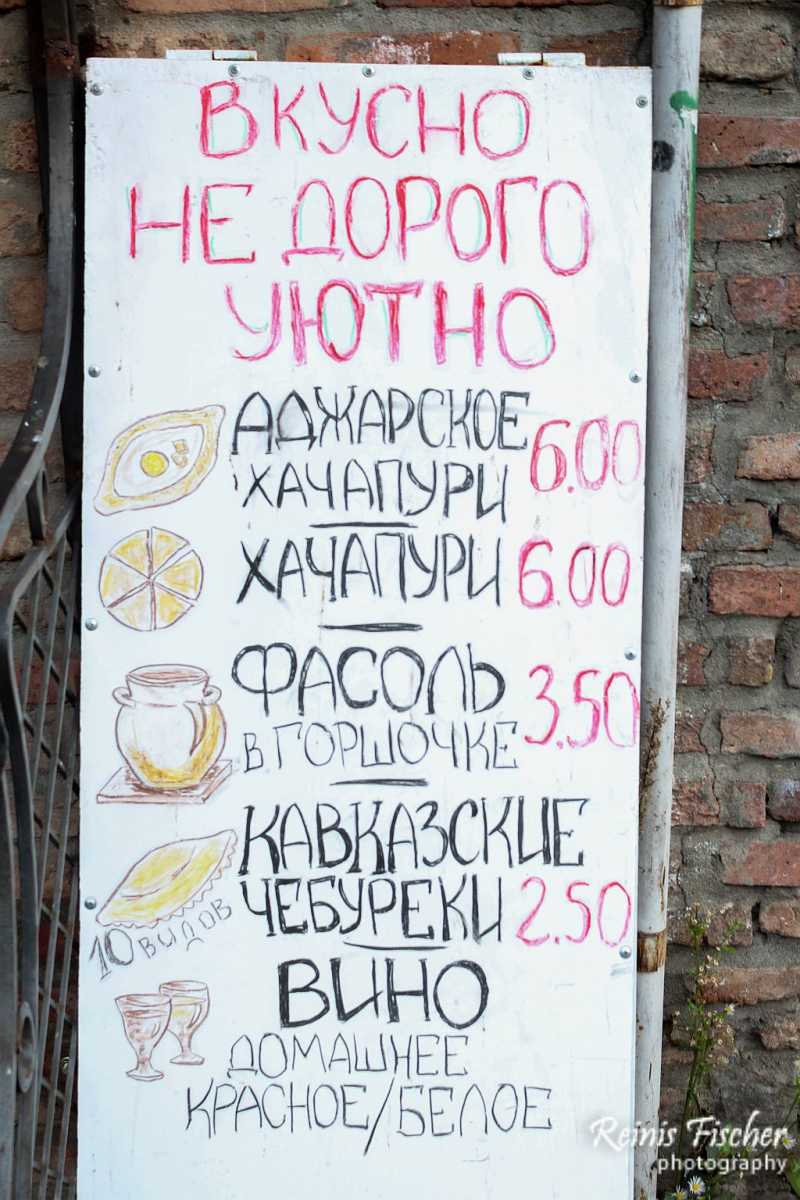 ВКУСНО
НЕ ДОРОГО
УЮТНО
АДЖАРСКОЕ
ХАЧАПУРИ 6.00
ХАЧАПУРИ 6.00
ФАСОЛЬ
В ГОРШОЧКЕ 3.50
КАВКАЗСКИЕ
ЧЕБУРЕКИ 2.50
10 видов
ВИНО
ДОМАШНЕЕ
КРАСНОЕ/БЕЛОЕ
Reinis Fischer
photography